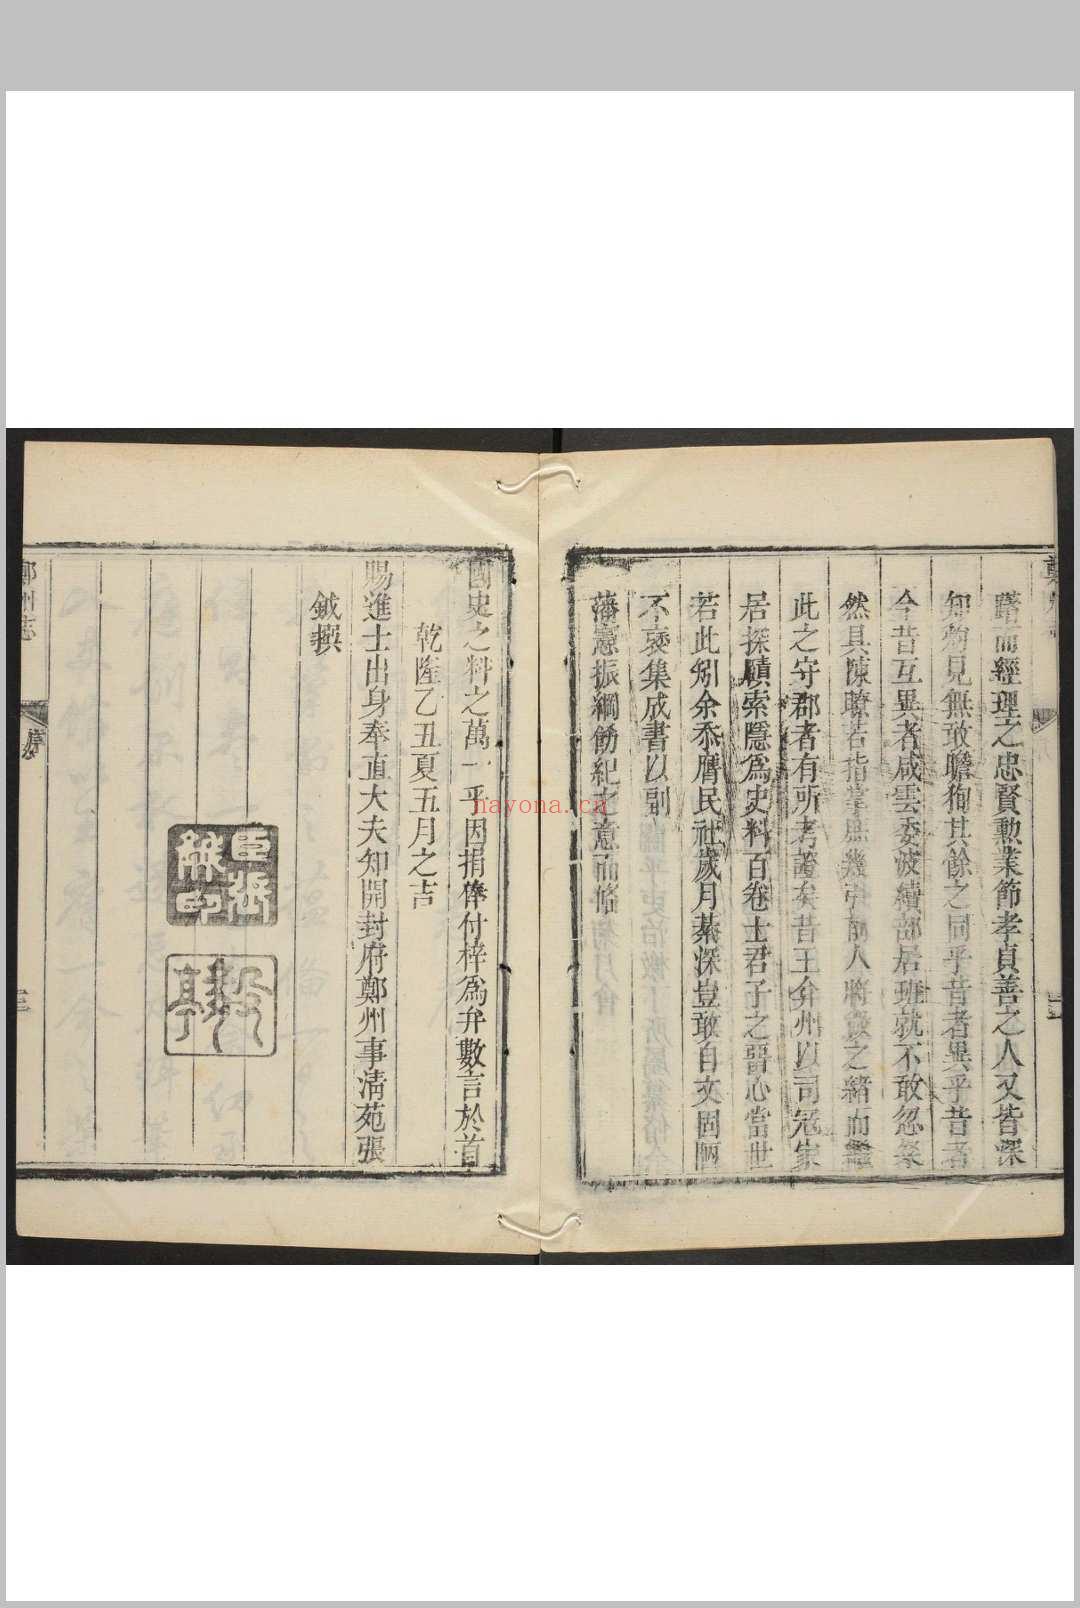 躇而經理之忠賢勲業節孝貞善之人又皆深
知灼見無敢瞻狥其餘之同乎昔者異乎昔者
今昔互異者咸雲委波續部居班就不敢忽粲
然具陳瞭若指掌庶幾引前人將墜之緒而
此之守郡者有所考證矣昔王弇州以司冦家
居探賾索隱爲史料百卷士君子之畱心當世
若此矧余忝膺民社歲月綦深豈敢自文固陋
不裒集成書以副
藩憲振綱飭紀之意而備
國史之料之萬一乎因捐俸付梓爲弁數言於首
乾隆乙丑夏五月之吉
賜進士出身奉直大夫知開封府鄭州事清苑張
鉞撰
鄭州志
序
nayona.cn